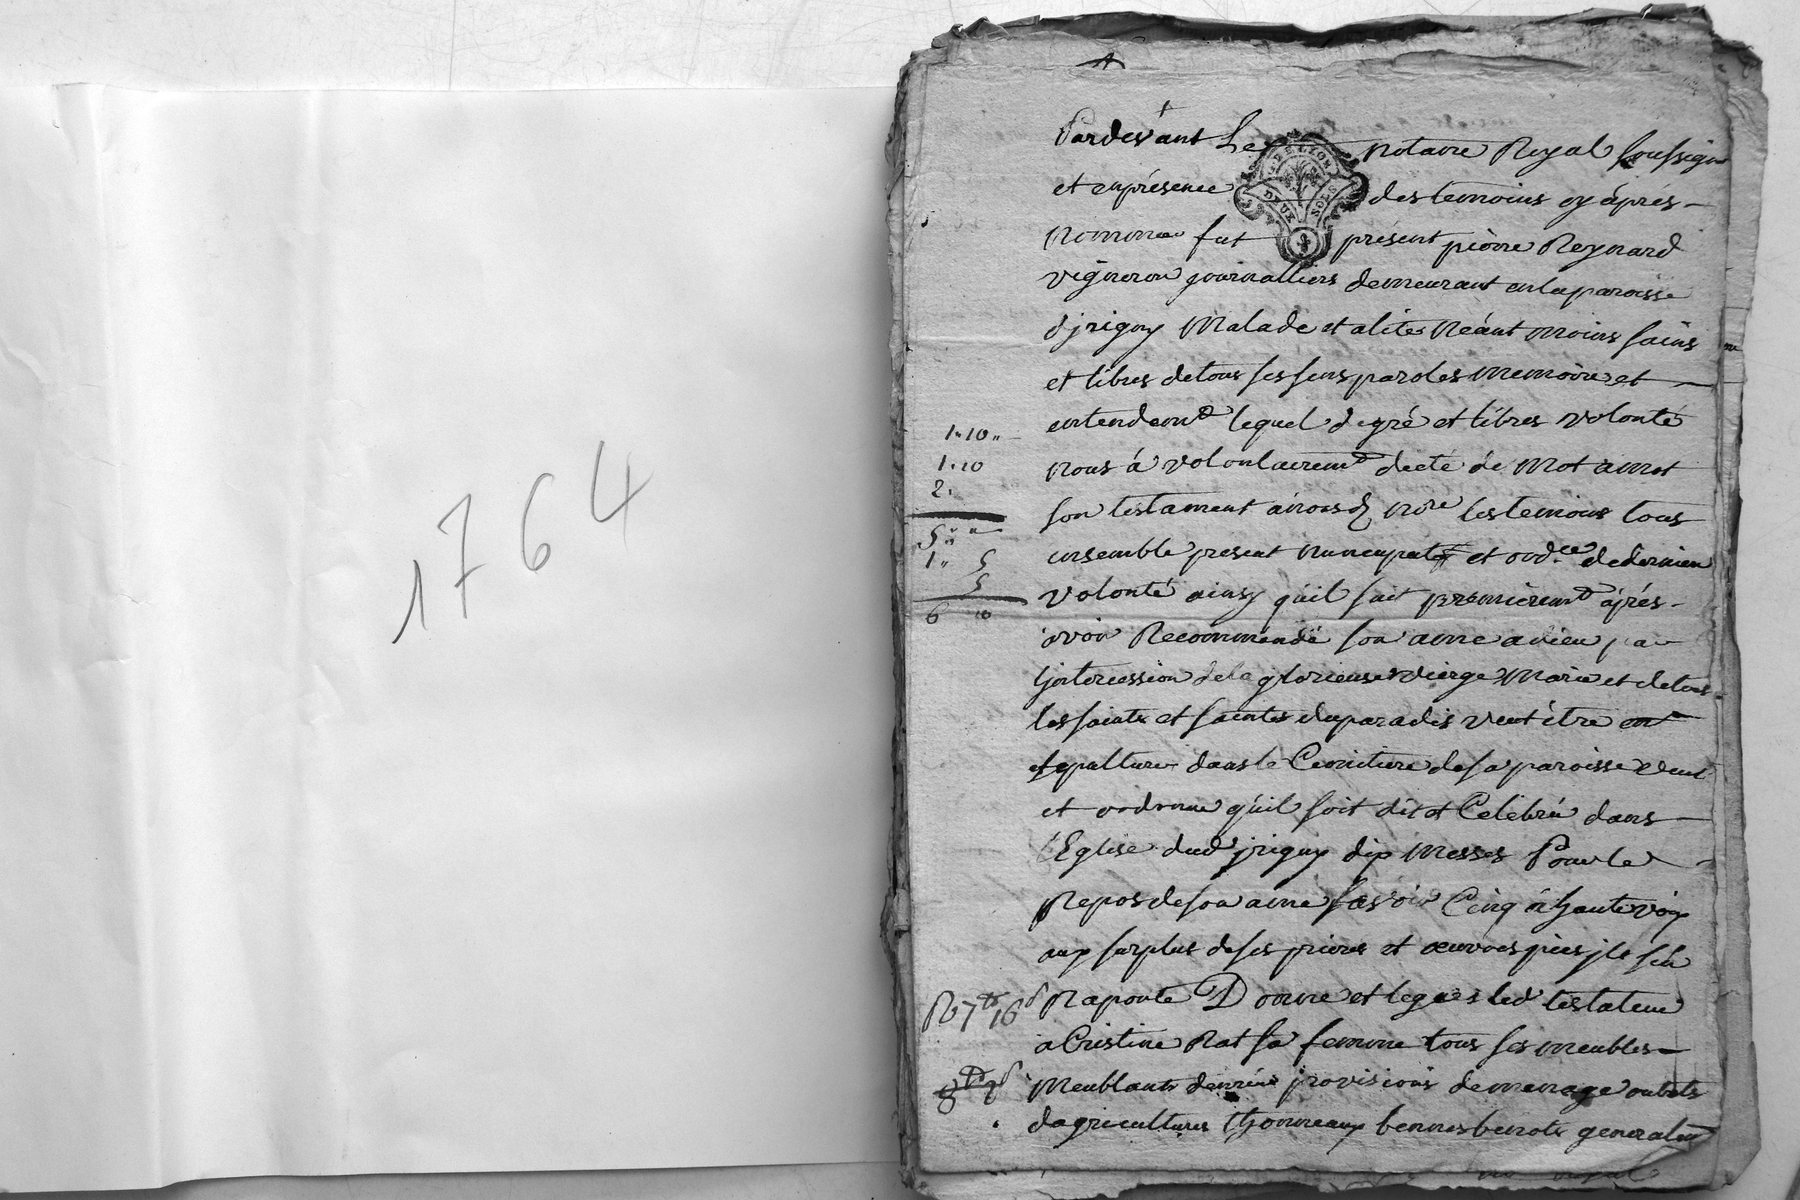 1764
Pardevant Le notaire Royal soussigné
G. DE LYON
DEUX SOLS
et enprésence des temoins cy áprés
Nommés fut présent pièrre Reynard
vigneron journalliers demeurant enla paroisse
d'jrigny Malade et alité Néant moins sains
et libres detous ses sens paroles memoire et
entendemt lequel de gré et libres volonté
nous à volontairemt dicté de Mot amot
son testament Nore les temoins tous
ensemble present nuncupatif et ordce de derniere
volonté ainsy quil suit premieremt áprés
avoir Recommendé son ame adieu par
Ljntercession dela glorieuse vierge Marie et detous
les saints et saintes duparadis veut être en
sepulture dans le Cemitiere desa paroisse veut
et ordonne quil soit dit et Celebré dans
l'Eglise dud jrigny dix Messes Pour le
Repos deson ame sçavoir Cinq á haute voix
aux surplus deses prieres et œuvres pies jl
Raporte Donne et legue led testateur
á Cristine Rat sa femme tous ses meubles
Meublants denrées provisions de menage outils
dagricultures thonneaux bennes benots generalemt
1.10 "
1.10
2.
5 " "
1 " 5
5
6 10